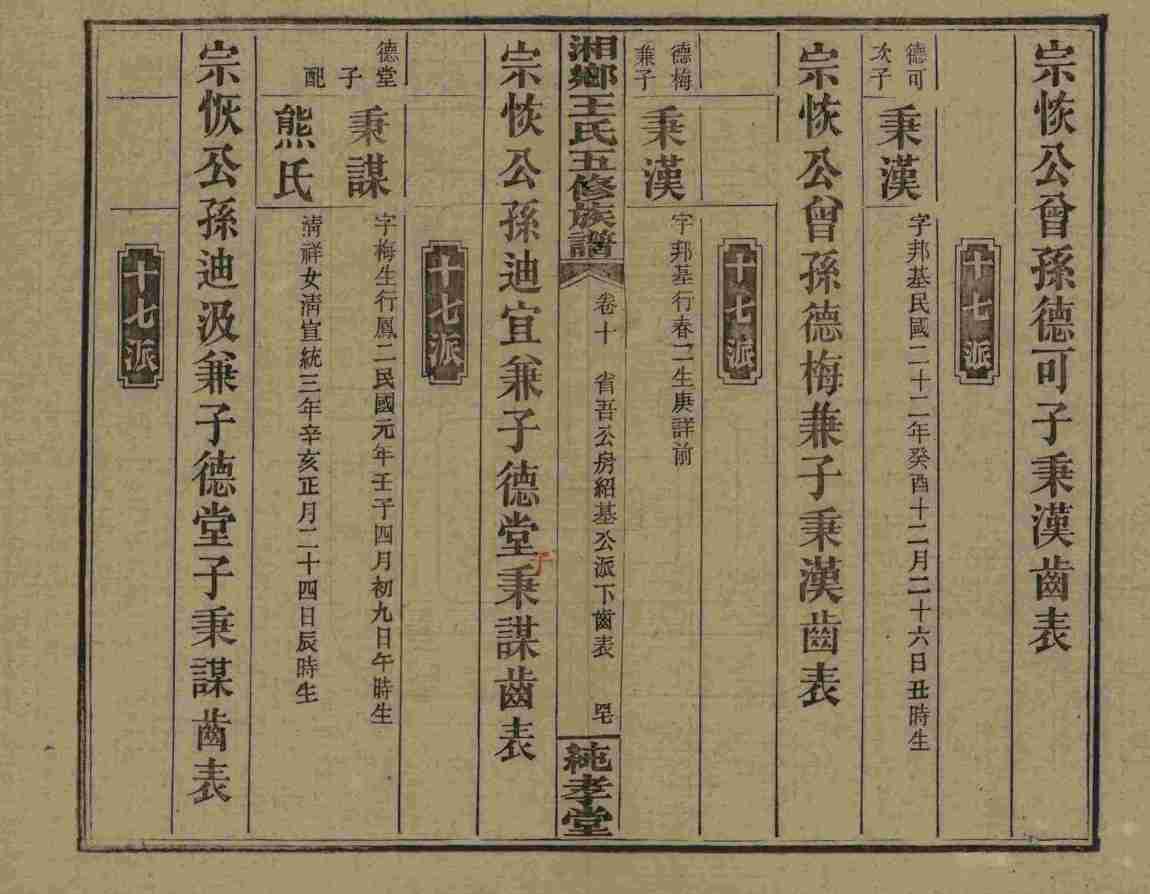 宗恢公曾孫德可子秉漢齒表
十七派
德可
次子
秉漢
字邦基民國二十二年癸酉十二月二十六日丑時生
宗恢公曾孫德梅兼子秉漢齒表
十七派
德梅
兼子
秉漢
字邦基行春二生庚詳前
湘鄉王氏五修族譜
卷十
省吾公房紹基公派下齒表
純孝堂
宗恢公孫迪宜兼子德堂子秉謀齒表
十七派
德堂
子
秉謀
字梅生行鳳二民國元年壬子四月初九日午時生
配
熊氏
清祥女清宣統三年辛亥正月二十四日辰時生
宗恢公孫迪汲兼子德堂子秉謀齒表
十七派